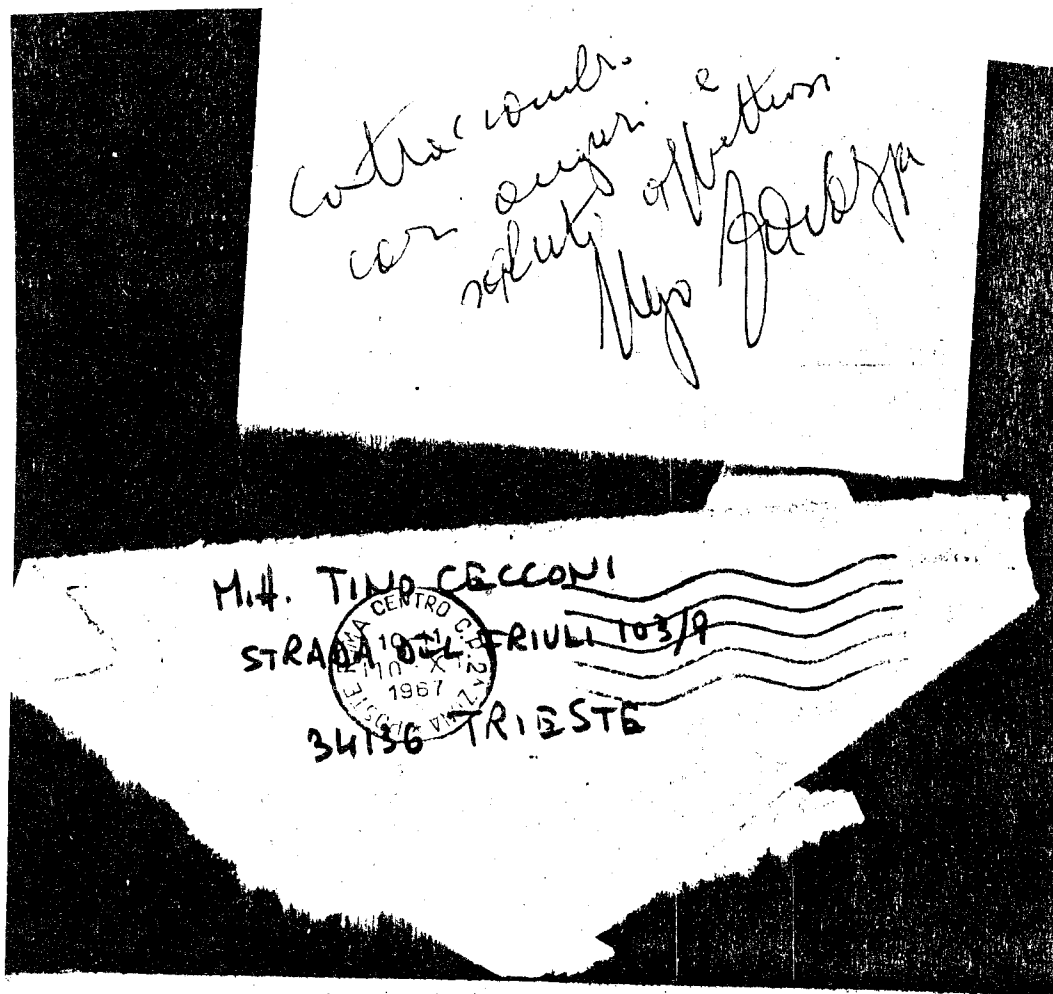 Contraccambio
cari auguri e
saluti affettuosi
M.H. TINO CECCONI
STRADA DEL FRIULI 103/9
34136 TRIESTE
ROMA CENTRO C.P. 2ª ZONA POSTE
1967